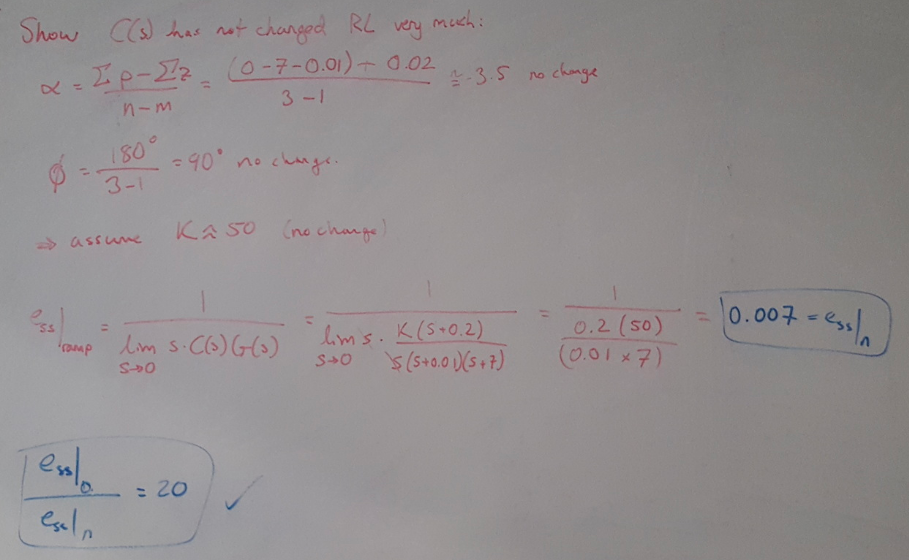 Show C(s) has not changed RL very much:
α = Σp - Σz / n-m = (0-7-0.01) + 0.02 / 3-1 ≈ -3.5 no change
φ = 180° / 3-1 = 90° no change.
⇒ assume K ≈ 50 (no change)
e_ss|ramp = 1 / lim s→0 s·C(s)G(s) = 1 / lim s→0 s · K(s+0.2) / s(s+0.01)(s+7) = 1 / 0.2(50) / (0.01 x 7) = 0.007 = e_ss|n
e_ss|o / e_ss|n = 20 ✓